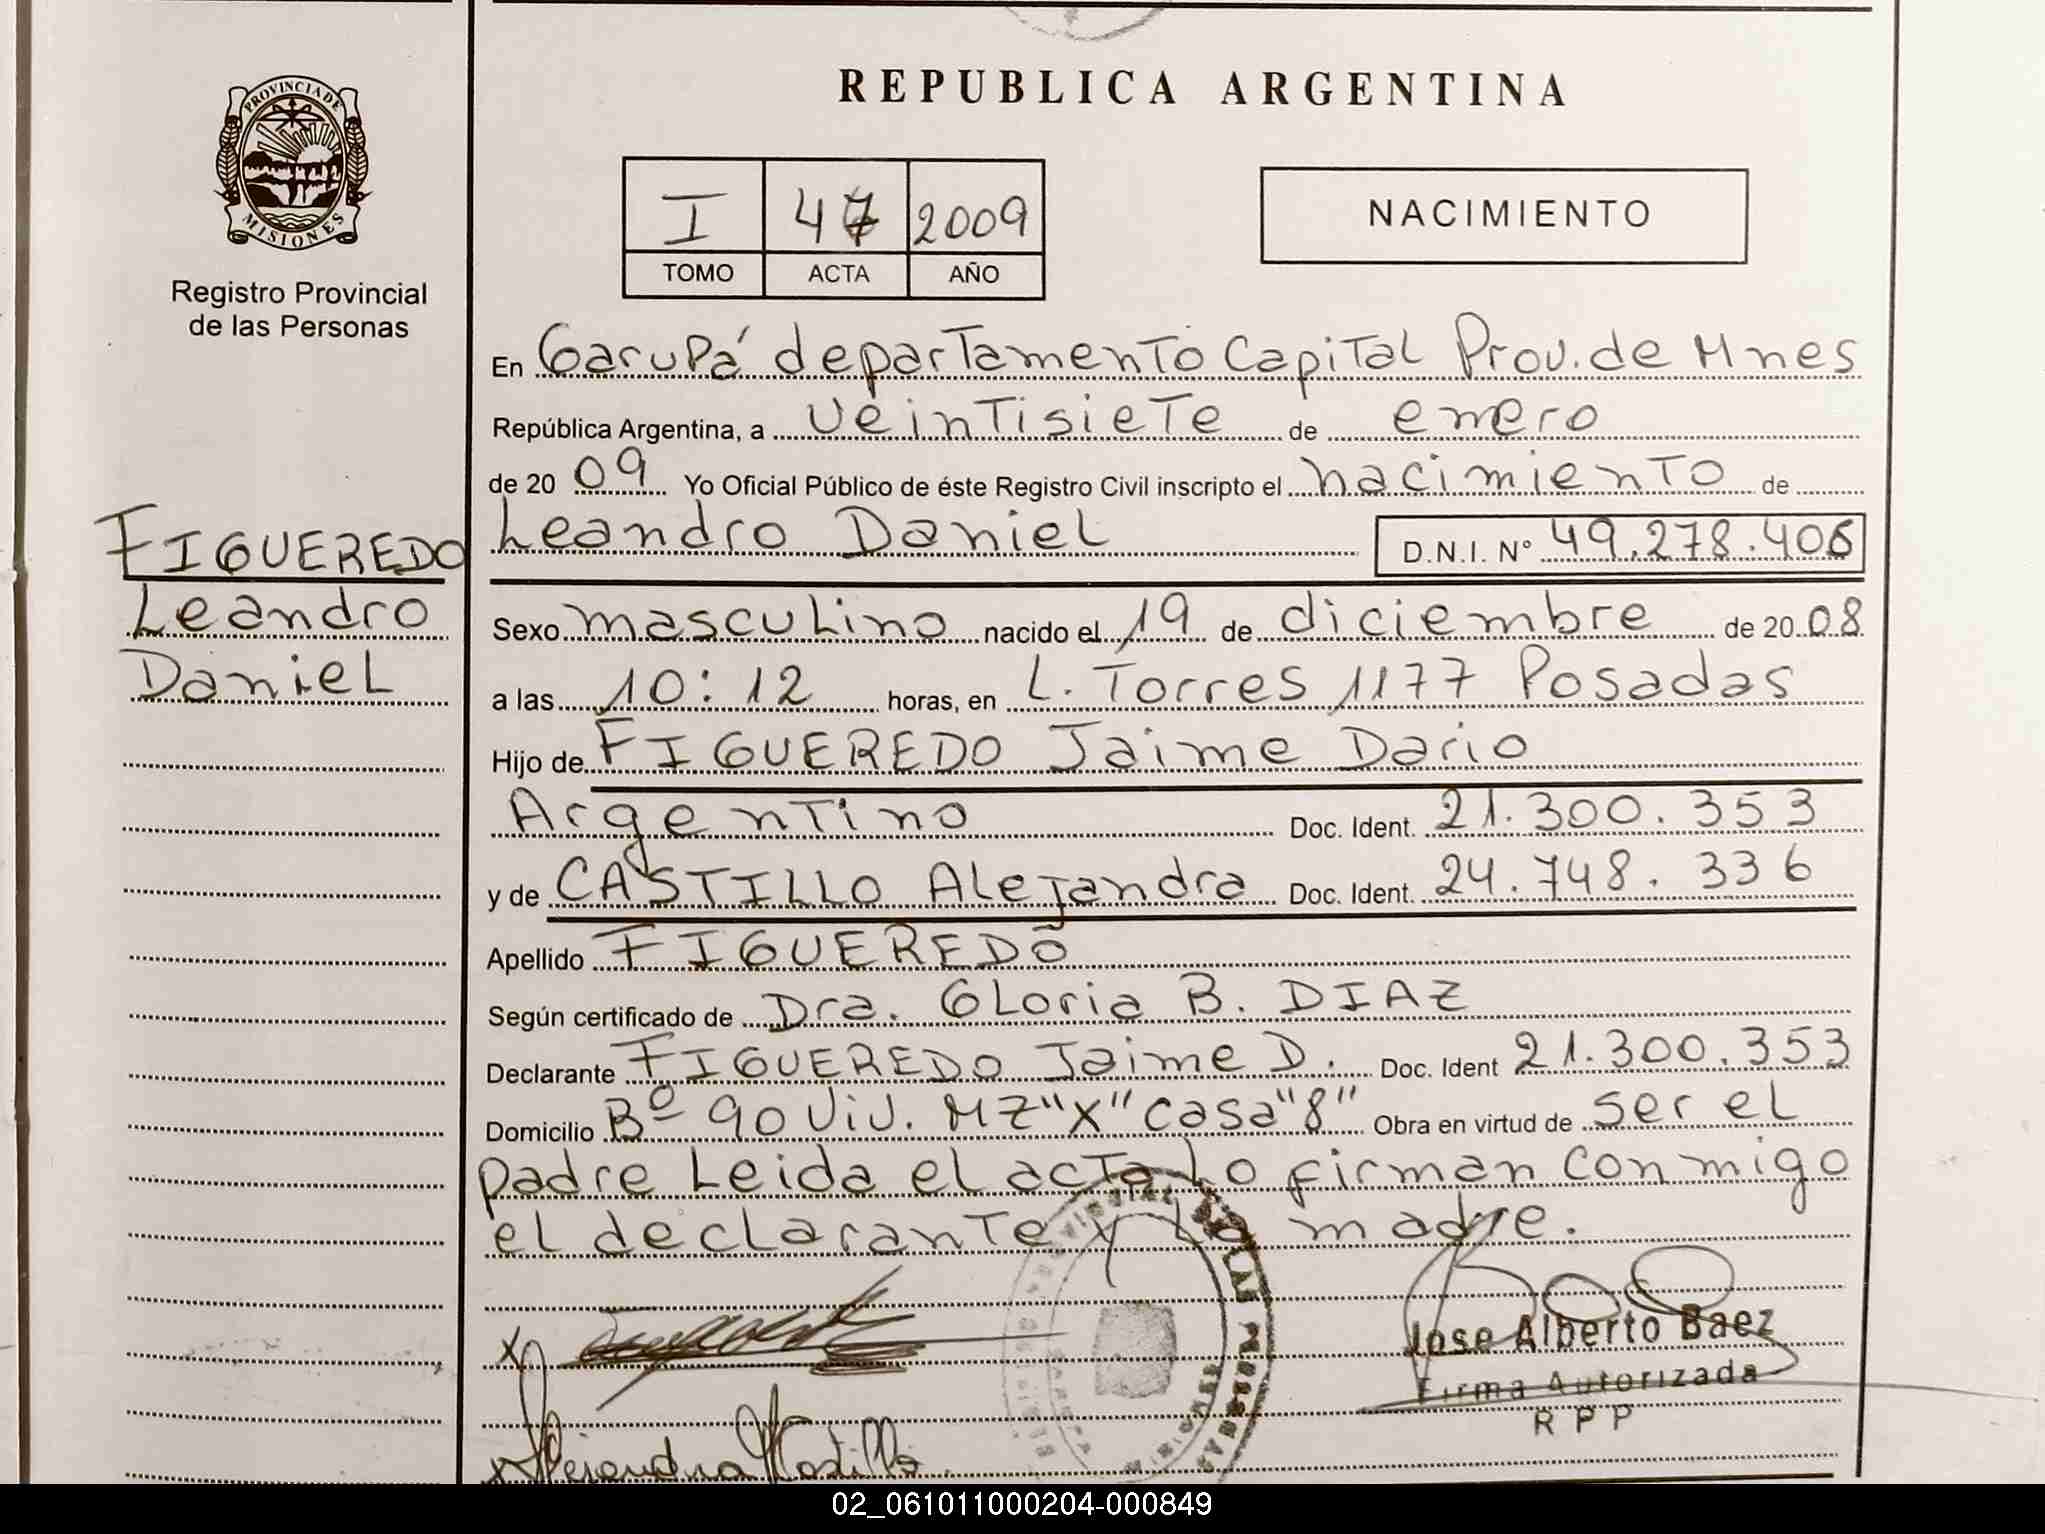 REPUBLICA ARGENTINA
PROVINCIA DE
MISIONES
Registro Provincial
de las Personas
I 47 2009
TOMO ACTA AÑO
NACIMIENTO
En Garupá departamento Capital Prov. de Mnes
República Argentina, a veintisiete de enero
de 20 09 Yo Oficial Público de éste Registro Civil inscripto el nacimiento de
Leandro Daniel D.N.I. N° 49.278.406
FIGUEREDO
Leandro
Daniel
Sexo masculino nacido el 19 de diciembre de 20 08
a las 10:12 horas, en L. Torres 1177 Posadas
Hijo de FIGUEREDO Jaime Dario
Argentino Doc. Ident. 21.300.353
y de CASTILLO Alejandra Doc. Ident. 24.748.336
Apellido FIGUEREDO
Según certificado de Dra. Gloria B. DIAZ
Declarante FIGUEREDO Jaime D. Doc. Ident 21.300.353
Domicilio Bº 90 Viv. MZ "X" casa "8" Obra en virtud de ser el
padre Leida el acta lo firman conmigo
el declarante y la madre.
X
Jose Alberto Baez
Firma Autorizada
R P P
x Alejandra Castillo
02_061011000204-000849